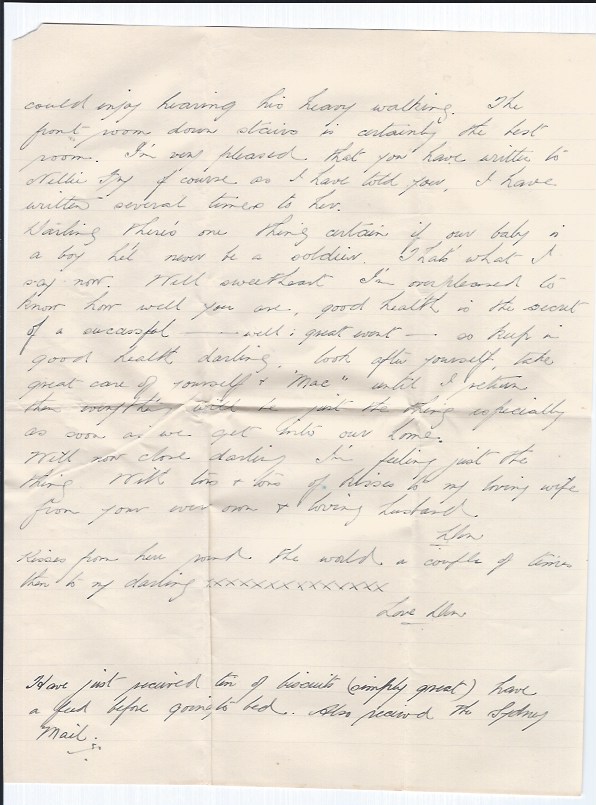 could enjoy hearing his heavy walking. The
front room down stairs is certainly the best
room. I'm very pleased that you have written to
Nellie of course as I have told you, I have
written several times to her.
Darling there's one thing certain if our baby is
a boy he'll never be a soldier. That's what I
say now. Well sweetheart I'm overpleased to
know how well you are, good health is the secret
of a successful —— well: great event — so keep in
good health darling, look after yourself, take
great care of yourself & "Mac" until I return
then everything will be just the thing especially
as soon as we get into our home.
Will now close darling I'm feeling just the
thing. With tons & tons of kisses to my loving wife
from your ever own & loving husband.
Kisses from here round the world a couple of times
then to my darling xxxxxxxxxxxxxx
Love
Have just received tin of biscuits (simply great) have
a feed before going to bed. Also received the Sydney
Mail.